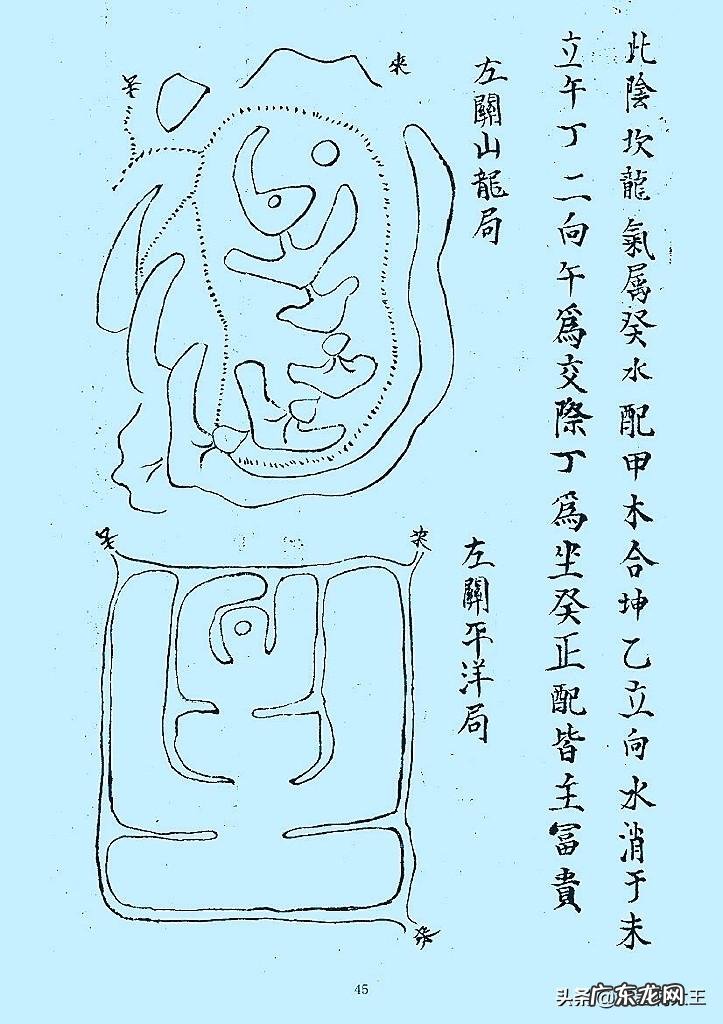 此陰坎龍氣属癸水配甲木合坤乙立向水消于未
立午丁二向午爲交際丁爲坐癸正配皆主冨貴
左關山龍局
來
左關平洋局
來
45
头条@
广东龙网
王